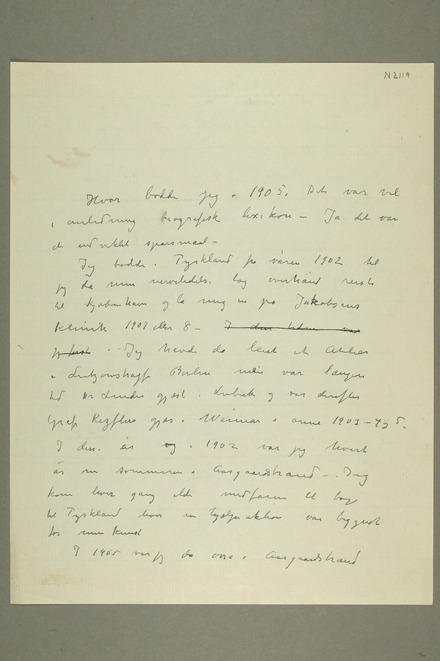 N 2119
Hvor bodde jeg i 1905. Det var vel
i anledning biografisk lexikon – Ja det var
et indviklet spørsmaal –
Jeg bodde i Tyskland fra våren 1902 til
jeg da min nervelidelse tog overhånd reiste
til Kjøbenhavn og la mig in på Jakobsens
Klinik 1908 eller 8 – I den tiden var
jeg først . Jeg havde da leiet et Atelier
i Lützowstrasse Berlin men var længere
tid Dr Lindes gjest i Lübeck og var derefter
Graf Kesslers gjest i Weimar i anne 1903–4 og 5.
I den år og i 1902 var jeg hvert
år om sommeren i Aasgaardstrand –. Jeg
kom hver gang
til Tyskland hvor en var bygget
for min kunst
I 1905 var jeg da også i Aasgaardstrand